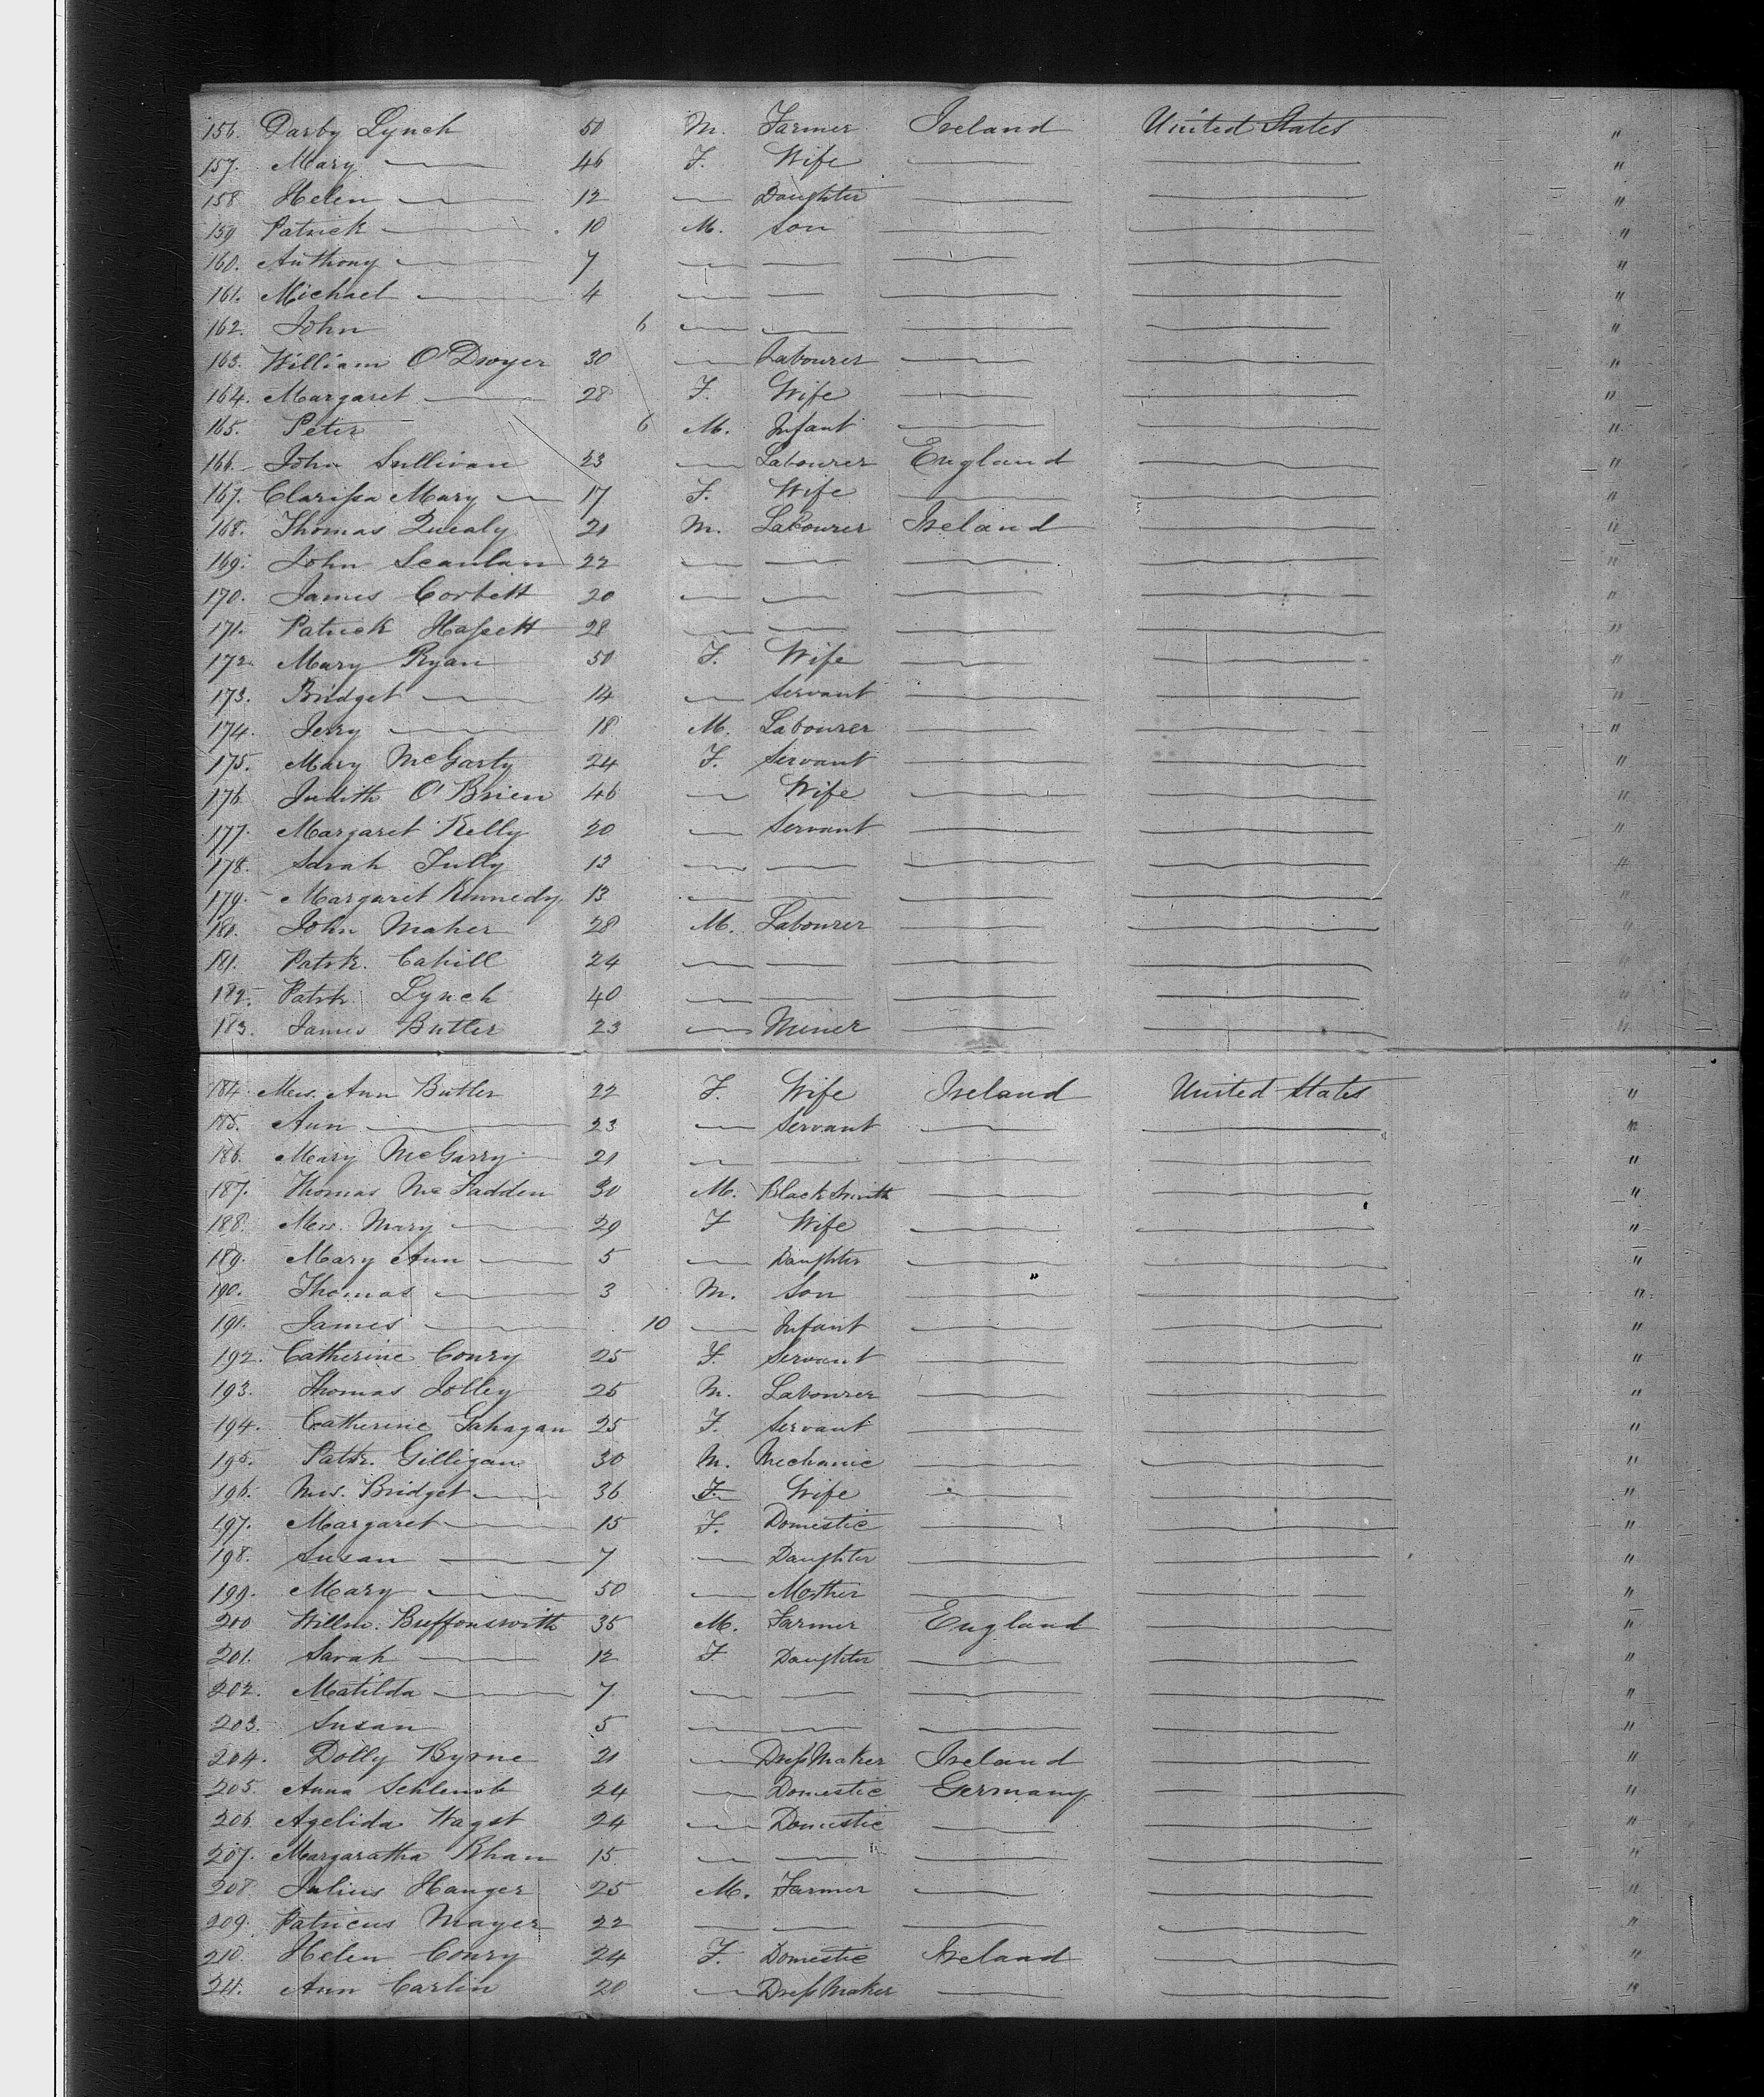 156. Darby Lynch 50 M. Farmer Ireland United States "
157. Mary — 46 F. Wife — — "
158 Helen — 12 — Daughter — — "
159 Patrick — 10 M. Son — — "
160. Anthony — 7 — — — — "
161. Michael — 4 — — — — "
162. John 6 — — — — "
163. William O'Dwyer 30 — Labourer — — "
164. Margaret — 28 F. Wife — — "
165. Peter 6 M. Infant — — "
166. John Sullivan 23 — Labourer England — "
167. Clarissa Mary — 17 F. Wife — — "
168. Thomas Quealy 21 M. Labourer Ireland — "
169. John Scanlan 22 — — — — "
170. James Corbett 20 — — — — "
171. Patrick Hassett 28 — — — — "
172. Mary Ryan 50 F. Wife — — "
173. Bridget — 14 — Servant — — "
174. Jerry — 18 M. Labourer — — "
175. Mary McGarty 24 F. Servant — — "
176 Judith O'Brien 46 — Wife — — "
177. Margaret Kelly 20 — Servant — — "
178. Sarah Tully 13 — — — — "
179. Margaret Kennedy 13 — — — — "
180. John Maher 28 M. Labourer — — "
181. Patrk. Cahill 24 — — — — "
182. Patrk. Lynch 40 — — — — "
183. James Butler 23 — Miner — — "
184. Mrs. Ann Butler 22 F. Wife Ireland United States "
185. Ann — 23 — Servant — — "
186. Mary McGarry 21 — — — — "
187. Thomas McFadden 30 M. Black Smith — — "
188. Mrs. Mary — 29 F Wife — — "
189. Mary Ann — 5 — Daughter — — "
190. Thomas — 3 M. Son — — "
191. James — 10 — Infant — — "
192. Catherine Conry 25 F. Servant — — "
193. Thomas Jolley 25 M. Labourer — — "
194. Catherine Gahagan 25 F. Servant — — "
195. Patk. Gilligan 30 M. Mechanic — — "
196. Mrs. Bridget — 36 F. Wife — — "
197. Margaret — 15 F. Domestic — — "
198. Susan — 7 — Daughter — — "
199. Mary — 50 — Mother — — "
200 Willm. Buffonswith 35 M. Farmer England — "
201. Sarah — 12 F Daughter — — "
202. Matilda — 7 — — — — "
203. Susan 5 — — — — "
204. Dolly Byrne 21 — Dress Maker Ireland — "
205. Anna 24 — Domestic Germany — "
206. Agelida Wagst 24 — Domestic — — "
207. Margaratha Rhan 15 — — — — "
208 Julius Hanger 25 M. Farmer — — "
209. Patricus Mayer 22 — — — — "
210. Helen Conry 24 F. Domestic Ireland — "
211. Ann Carlin 20 — Dress Maker — — "